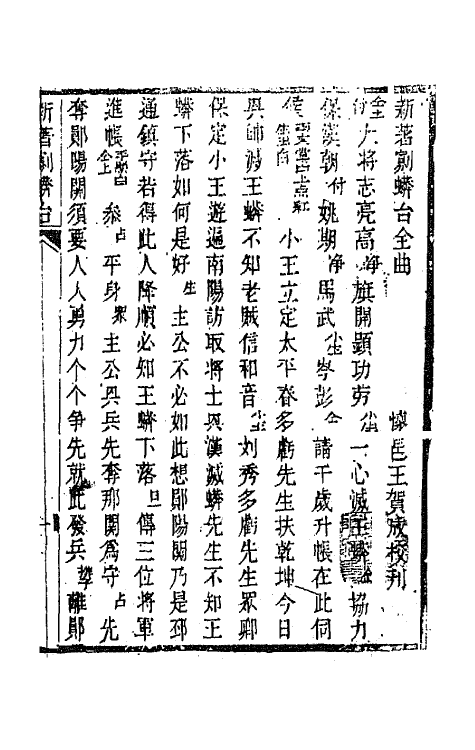 新著剮蟒台全曲　懷邑王賀成校刋
大将志亮高淨旗開顕功劳尘一心滅王蟒仝協力
保漢朝付姚期淨馬武尘岑彭仝請千歲升帳在此伺
小王立定太平春多虧先生扶乾坤今日
兴師滅王蟒不知老賊信和音尘刘秀多虧先生眾卿
保定小王遊遍南陽訪取將士兴漢滅蟒先生不知王
蟒下落如何是好生主公不必如此想鄖陽関乃是邳
通鎮守若得此人降順必知王蟒下落旦傳三位將軍
進帳参占平身眾主公兴兵先奪那関為守占先
奪鄖陽開須要人人勇力个个争先就此發兵離鄖
新著剮蟒台